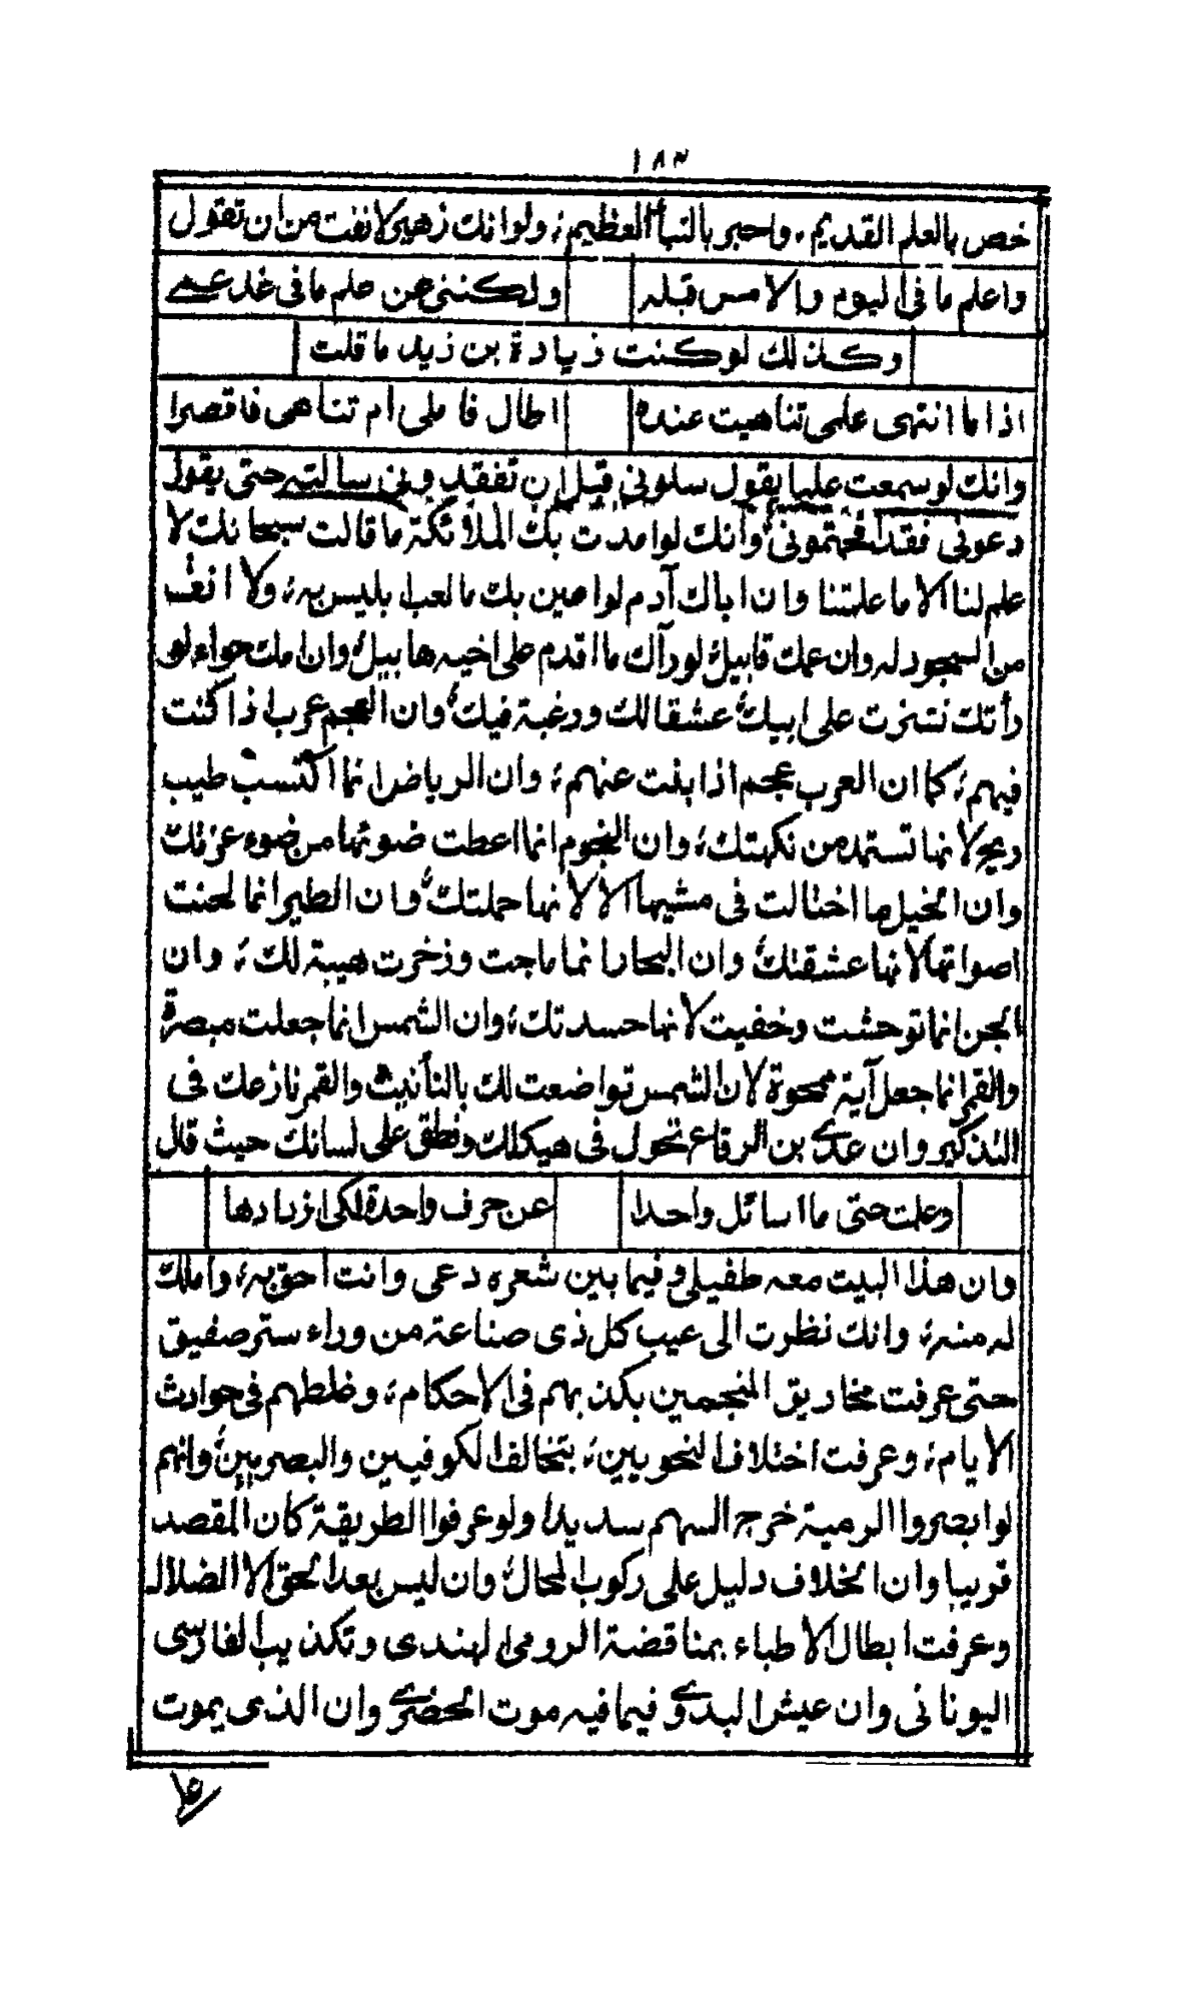 ١٨٣
خص بالعلم القديم، واخبر بالنبأ العظيم؛ ولو انك زهير لانفت من ان تقول
واعلم ما فى اليوم والامس قبله ولكننى عن علم ما فى غد عمے
وكذلك لو كنت زيادة بن زيد ما قلت
اذا ما انتهى علمى تناهيت عنده اطال فاملى ام تناهى فاقصرا
وانك لو سمعت عليا يقول سلونى قبل ان تفقدونى سالته حتى يقول
دعونى فقد افحمتمونى؛ وانك لو امدت بك الملائكة ما قالت سبحانك لا
علم لنا الا ما علمتنا وان اباك آدم لو اعين بك ما لعب ابليس به؛ ولا انف
من السجود له وان عمك قابيل لو رآك ما اقدم على اخيه هابيل؛ وان امك حواء لو
رأتك نشزت على ابيك؛ عشقا لك ورغبة فيك؛ وان العجم عرب اذا كنت
فيهم؛ كما ان العرب عجم اذا بنت عنهم؛ وان الرياض انما اكتسب طيب
ريحه لانها تستمد من نكهتك؛ وان النجوم انما اعطت ضوئها من ضوء عزتك
وان الخيل ما اختالت فى مشيها الا لانها حملتك؛ وان الطير انما لحنت
اصواتها لانها عشقتك؛ وان البحار انما ماجت وزخرت هيبة لك؛ وان
الجن انما توحشت وخفيت لانها حسدتك؛ وان الشمس انما جعلت مبصرة
والقمر انما جعل آية ممحوة لان الشمس تواضعت لك بالتأنيث والقمر نازعك فى
التذكير وان عدے بن الرقاع تحول فى هيكلك ونطق على لسانك حيث قال
وعلمت حتى ما اسائل واحدا عن حرف واحدة لكى ازدادها
وان هذا البيت معه طفيلى وفيما بين شعره دعى وانت احق به؛ واملك
له منه؛ وانك نظرت الى عيب كل ذى صناعة من وراء ستر صفيق
حتى عرفت مخاريق المنجمين بكذبهم فى الاحكام؛ وغلطهم فى حوادث
الايام؛ وعرفت اختلاف النحويين؛ بتخالف الكوفيين والبصريين؛ وانهم
لو ابصروا الرمية خرج السهم سديدا ولو عرفوا الطريقة كان المقصد
قريبا وان الخلاف دليل على ركوب المحال؛ وان ليس بعد الحق الا الضلال
وعرفت ابطال الاطباء بمناقضة الرومى الهندى وتكذيب الفارسى
اليونانى وان عيش البدوے فيما فيه موت الحضرے وان الذى يموت